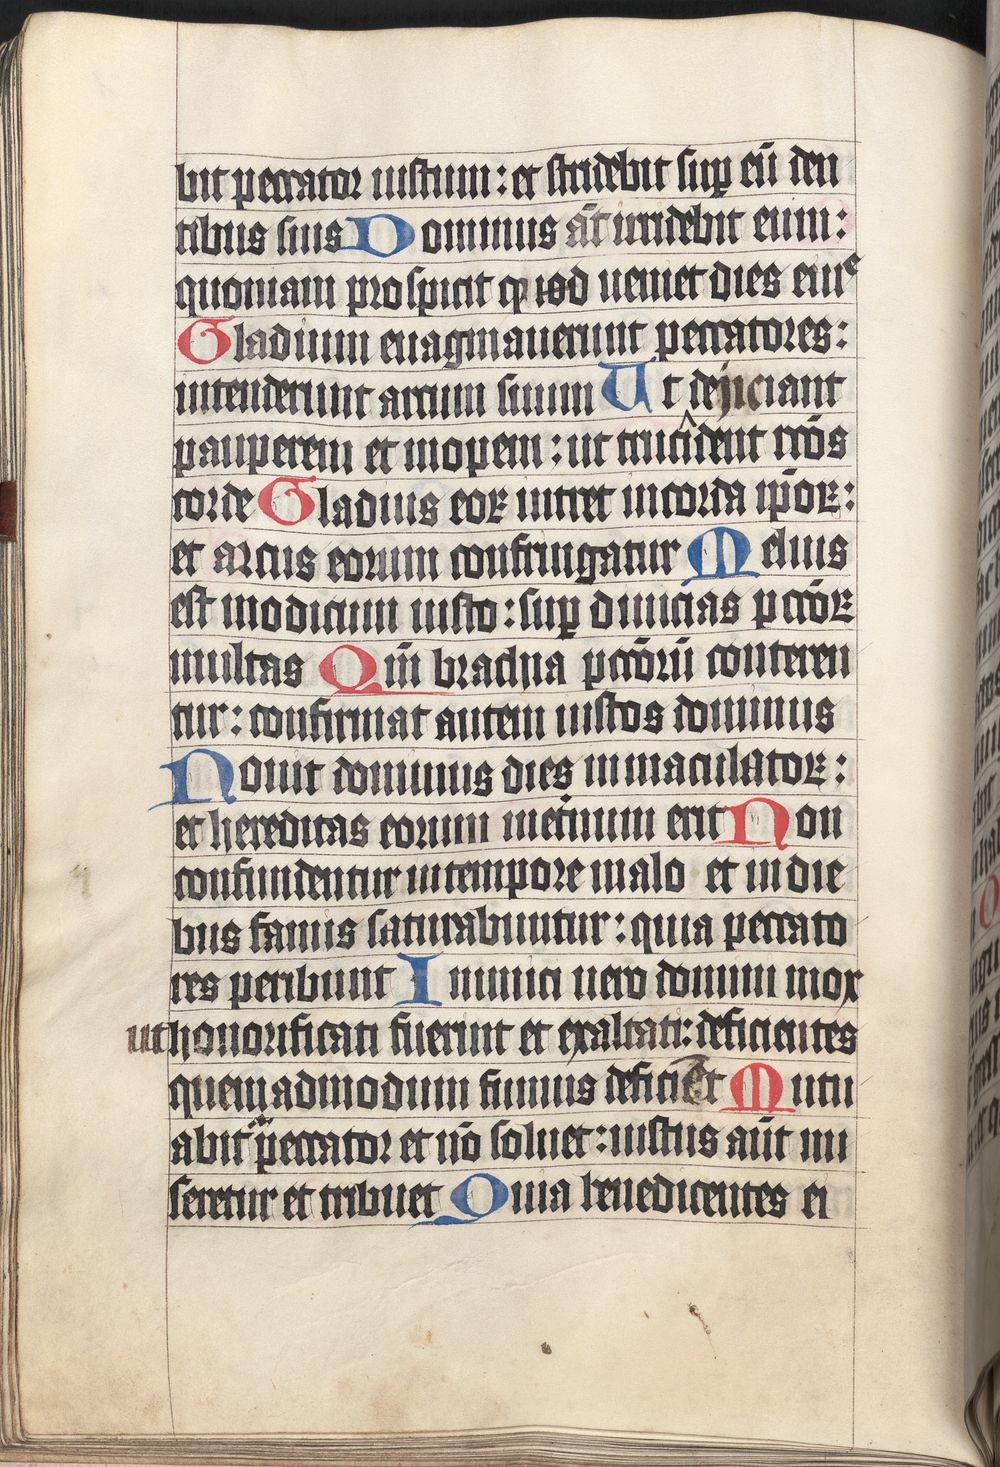 bit peccator iustum: et stridebit sup̱ eū den
tibus suis Dominus aūt irridebit eum:
quoniam prospicit quod ueniet dies eiuꝰ
Gladium euaginauerunt peccatores:
intenderunt arcum suum Ut dejiciant
pauperem et inopem: ut trucident rctōs
corde Gladius eoꝝ intret in corda ip̄oꝝ:
et arcus eorum confringatur Melius
est modicum iusto: sup̱ diuicias pctōꝝ
multas Qm̄ brachia pctōrū conteren
tur: confirmat autem iustos dominus
Nouit dominus dies immaculatoꝝ:
et hereditas eorum ineternum erit Non
confundentur in tempore malo et in die
bus famis saturabuntur: quia peccato
res peribunt Inimici uero domini mox
ut honorificati fuerint et exaltati: deficientes
quemadmodum fumus deficiet Mutu
abit᷑ peccator et nō soluet: iustus aūt mi
seretur et tribuet Quia benedicentes ei